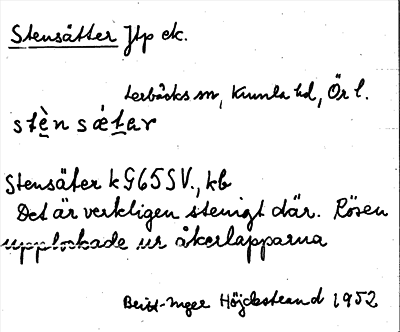 Stensätter Jtp ek.
Lerbäcks sn, Kumla hd, Ör l.
stèn sǽtar
Stensäter k G65SV., kb
Det är verkligen stenigt där. Rösen
upplockade ur åkerlapparna
Britt-Inger Höjdestrand 1952